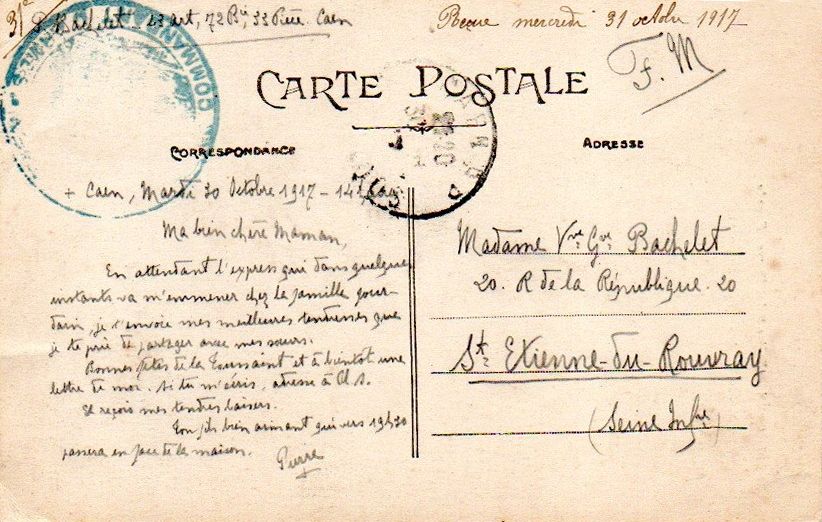 31e P. Bachelet. 43 art, 72 Bie, 33 Pièce. Caen
Reçue mercredi 31 octobre 1917
F. M
COMMAN
CARTE POSTALE
CORRESPONDANCE
ADRESSE
+ Caen, Mardi 30 Octobre 1917 - 14h
Ma bien chère Maman,
En attendant l'express qui dans quelques
instants va m'emmener chez la famille Jour-
dain, je t'envoie mes meilleures tendresses que
je te prie de partager avec mes sœurs.
Bonnes fêtes de la Toussaint et à bientôt une
lettre de moi. Si tu m'écris, adresse à
Et reçois mes tendres baisers.
Ton fils bien aimant qui vers 19h20
passera en face de la maison.
Pierre
Madame Vve Gve Bachelet
20. R de la République. 20
St Etienne-du-Rouvray
(Seine Infre)